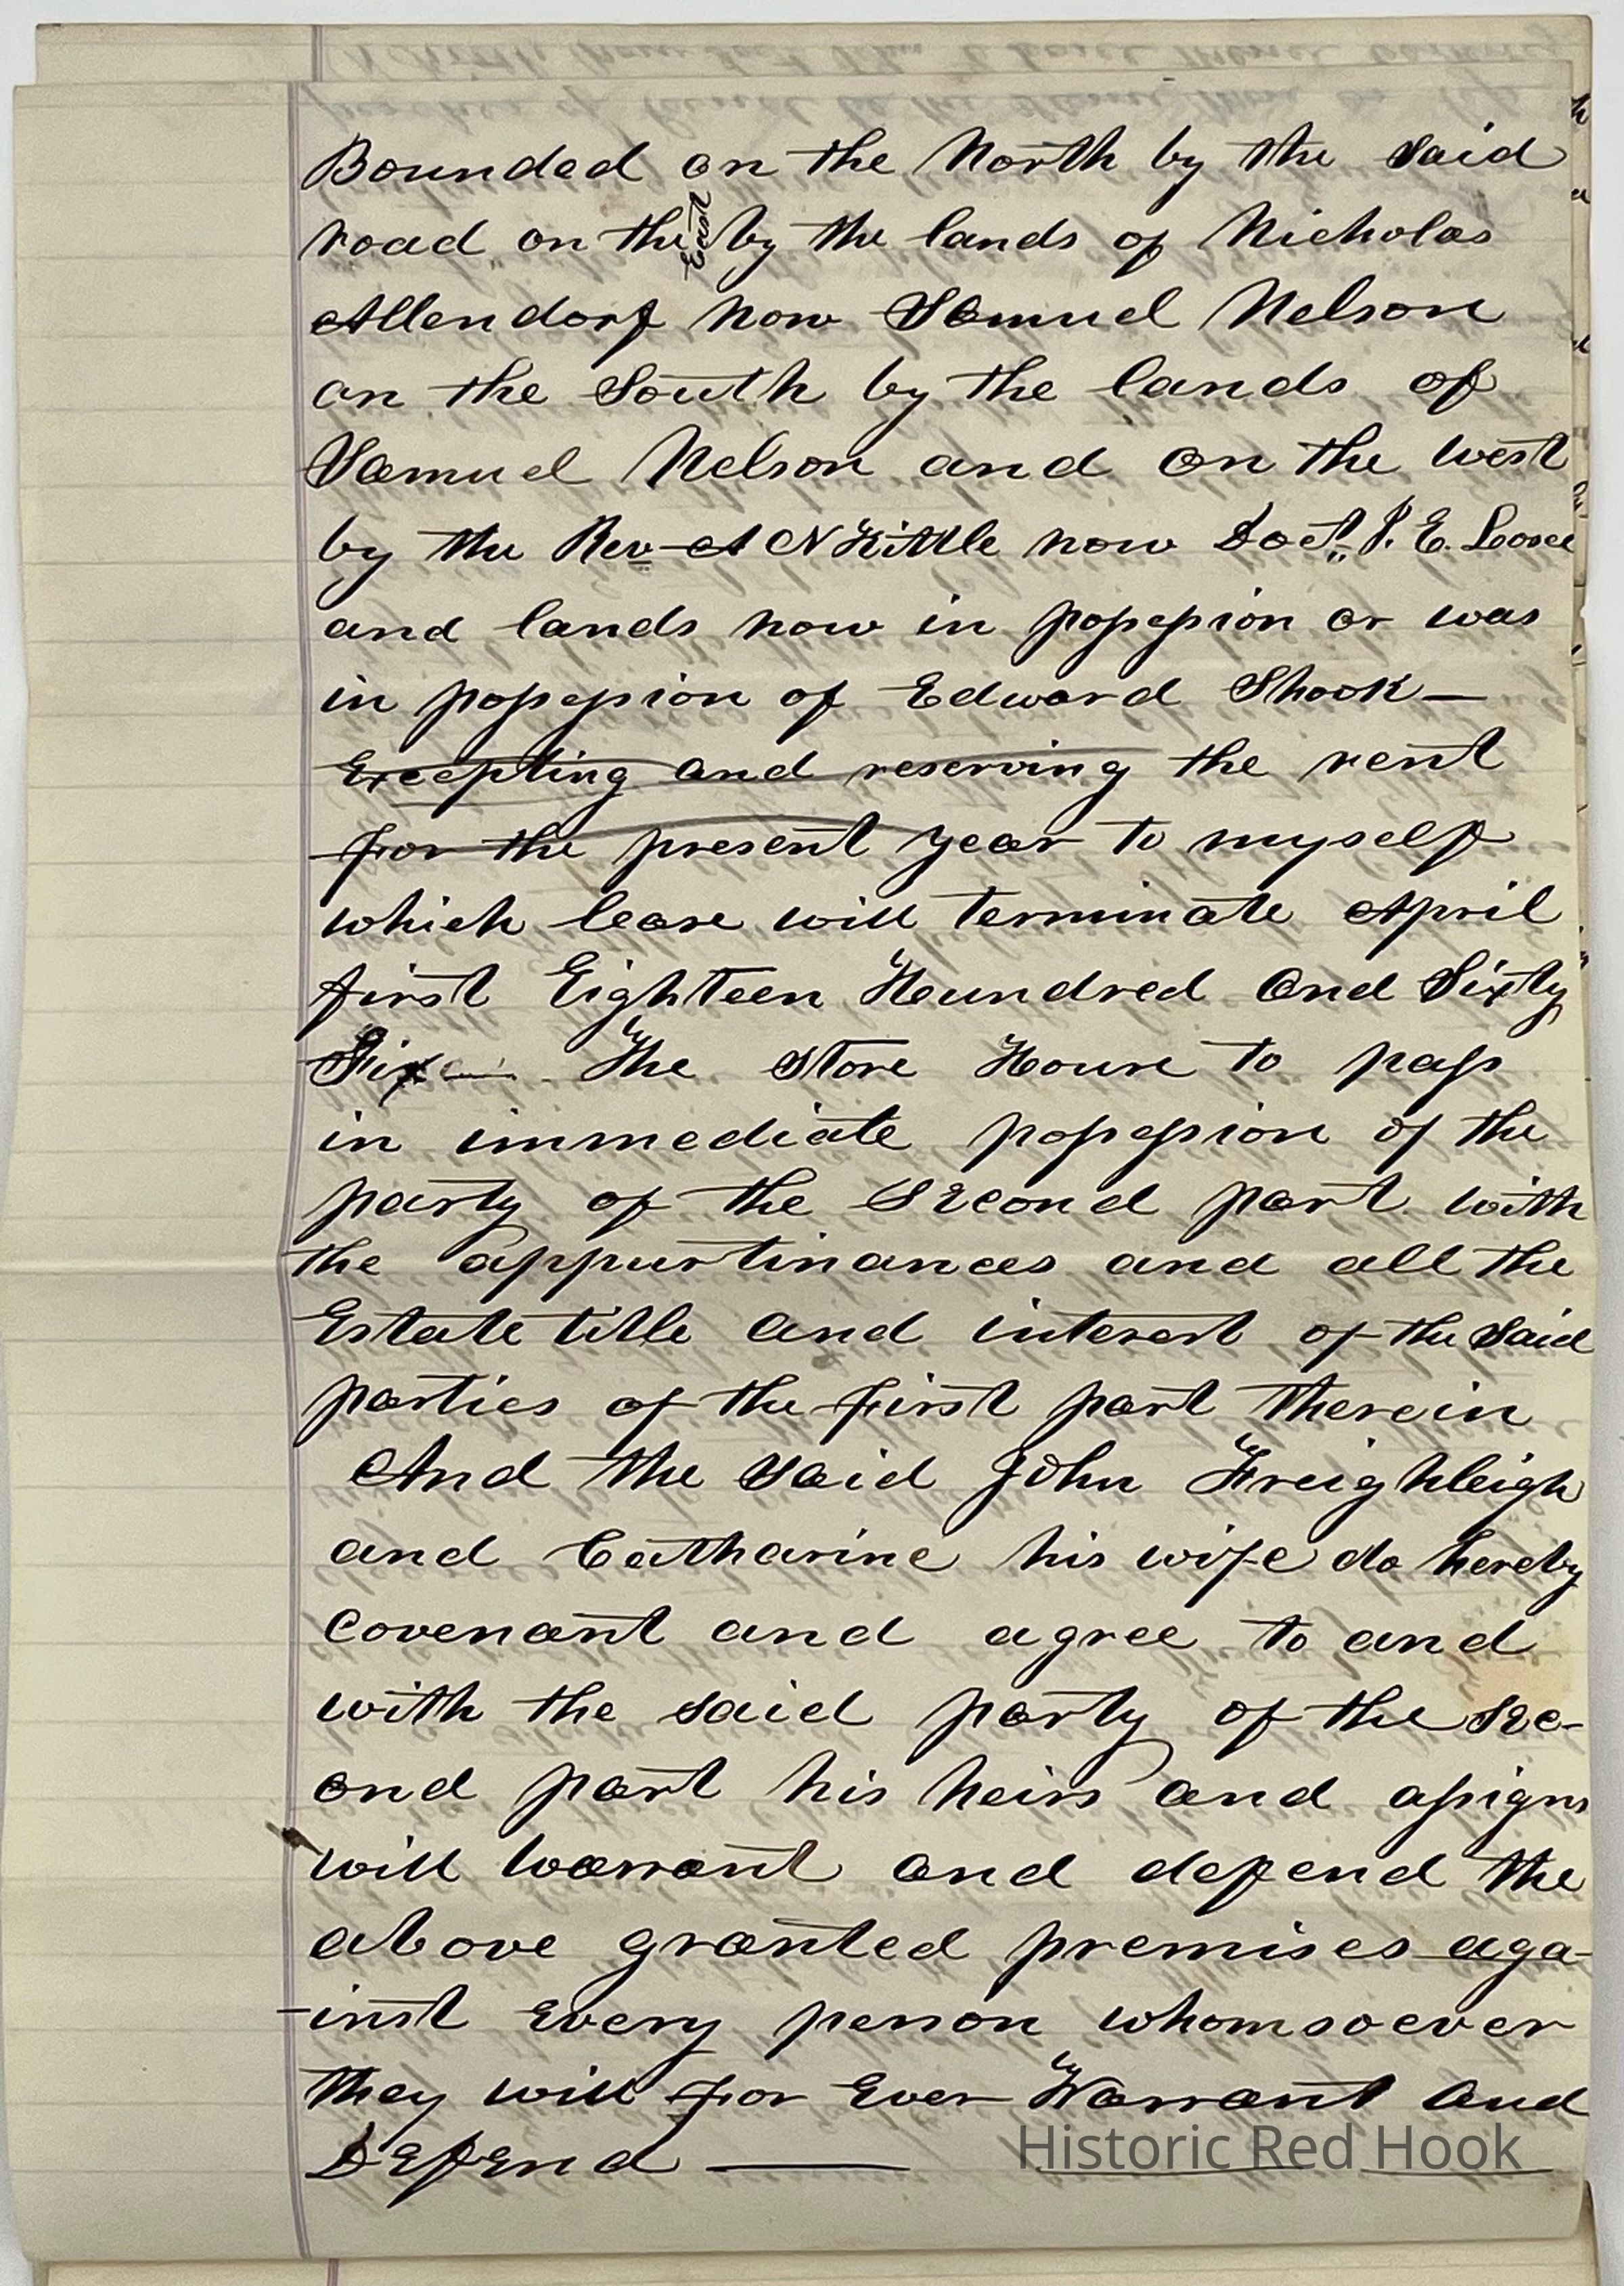 Bounded on the North by the said
road on the East by the lands of Nicholas
Allendorf now Samuel Nelson
on the South by the lands of
Samuel Nelson and on the west
by the Rev A N Kittle now Doct. J. E. Losee
and lands now in possession or was
in possession of Edward Shook —
Excepting and reserving the rent
for the present year to myself
which lease will terminate April
first Eighteen Hundred and Sixty
Six The Store House to pass
in immediate possession of the
party of the Second part with
the appurtinances and all the
Estate title and interest of the said
parties of the first part therein
And the said John Freighleigh
and Catharine his wife do hereby
Covenant and agree to and
with the said party of the sec-
ond part his heirs and assigns
will warrant and defend the
above granted premises aga-
-inst Every person whomsoever
they will for Ever Warrant and
Defend —
Historic Red Hook